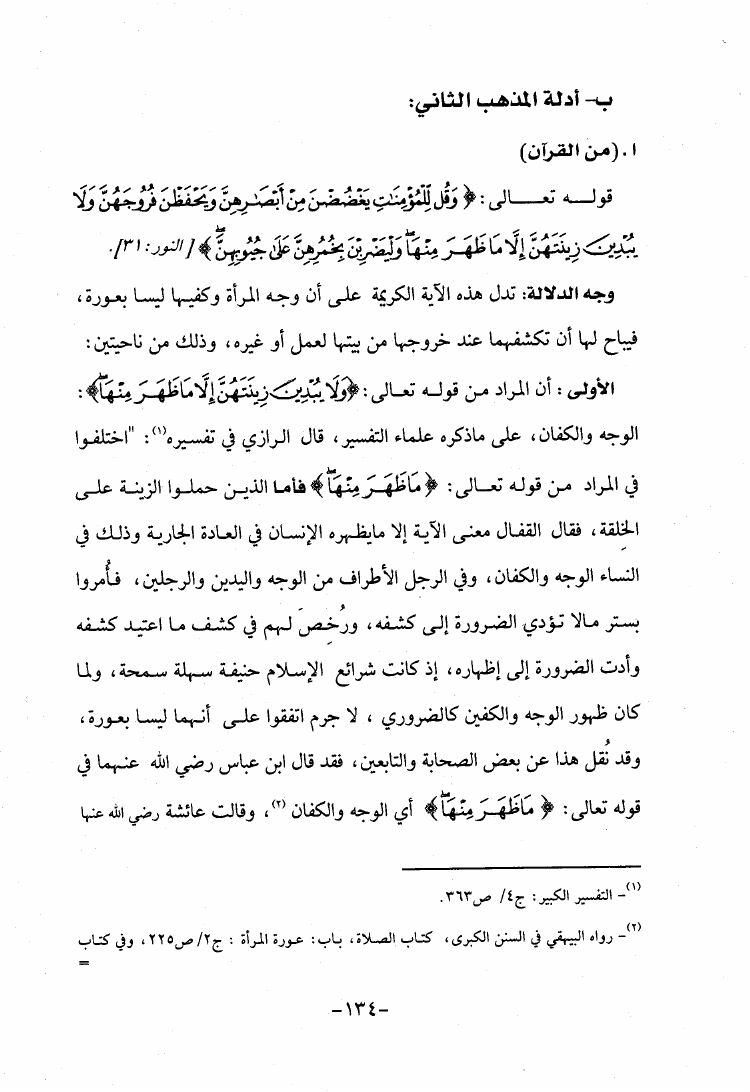 ب- أدلة المذهب الثاني:
١. (من القرآن)
قولـه تعـــالى: ﴿ وَقُل لِّلْمُؤْمِنَٰتِ يَغْضُضْنَ مِنْ أَبْصَٰرِهِنَّ وَيَحْفَظْنَ فُرُوجَهُنَّ وَلَا
يُبْدِينَ زِينَتَهُنَّ إِلَّا مَا ظَهَرَ مِنْهَا ۖ وَلْيَضْرِبْنَ بِخُمُرِهِنَّ عَلَىٰ جُيُوبِهِنَّ ۖ ﴾ [النور: ٣١].
وجه الدلالة: تدل هذه الآية الكريمة على أن وجه المرأة وكفيها ليسا بعورة،
فيباح لها أن تكشفهما عند خروجها من بيتها لعمل أو غيره، وذلك من ناحيتين:
الأولى: أن المراد من قولـه تعالى: ﴿وَلَا يُبْدِينَ زِينَتَهُنَّ إِلَّا مَا ظَهَرَ مِنْهَا ۖ﴾:
الوجه والكفان، على ماذكره علماء التفسير، قال الرازي في تفسيره(١): "اختلفوا
في المراد من قوله تعـالى: ﴿ مَا ظَهَرَ مِنْهَا ۖ ﴾ فأما الذين حملوا الزينة على
الخلقة، فقال القفال معنى الآية إلا مايظهره الإنسان في العادة الجارية وذلك في
النساء الوجه والكفان، وفي الرجل الأطراف من الوجه واليدين والرجلين، فأُمروا
بستر مالا تؤدي الضرورة إلى كشفه، ورُخِّصَ لهم في كشف ما اعتيد كشفه
وأدت الضرورة إلى إظهاره، إذ كانت شرائع الإسلام حنيفة سهلة سمحة، ولما
كان ظهور الوجه والكفين كالضروري ، لا جرم اتفقوا على أنهما ليسا بعورة،
وقد نُقل هذا عن بعض الصحابة والتابعين، فقد قال ابن عباس رضي الله عنهما في
قوله تعالى: ﴿ مَا ظَهَرَ مِنْهَا ۖ﴾ أي الوجه والكفان (٢)، وقالت عائشة رضي الله عنها
(١)- التفسير الكبير: ج٤/ ص٣٦٣.
(٢)- رواه البيهقي في السنن الكبرى، كتاب الصلاة، باب: عورة المرأة : ج٢/ ص٢٢٥، وفي كتاب
=
-١٣٤-